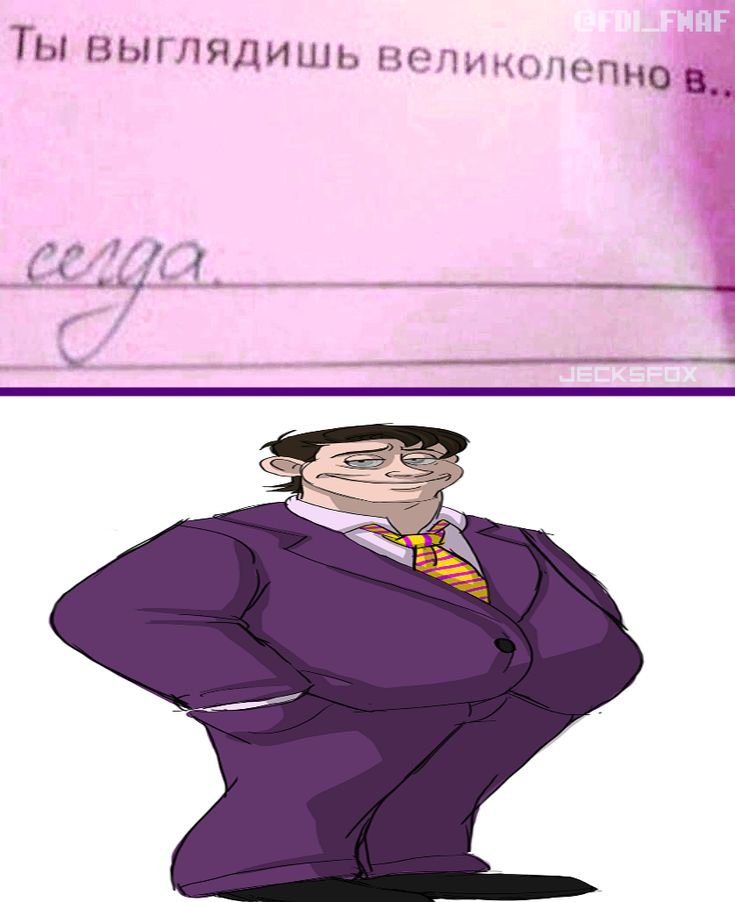 @FDI_FNAF
Ты выглядишь великолепно в..
сегда.
JECKSFOX